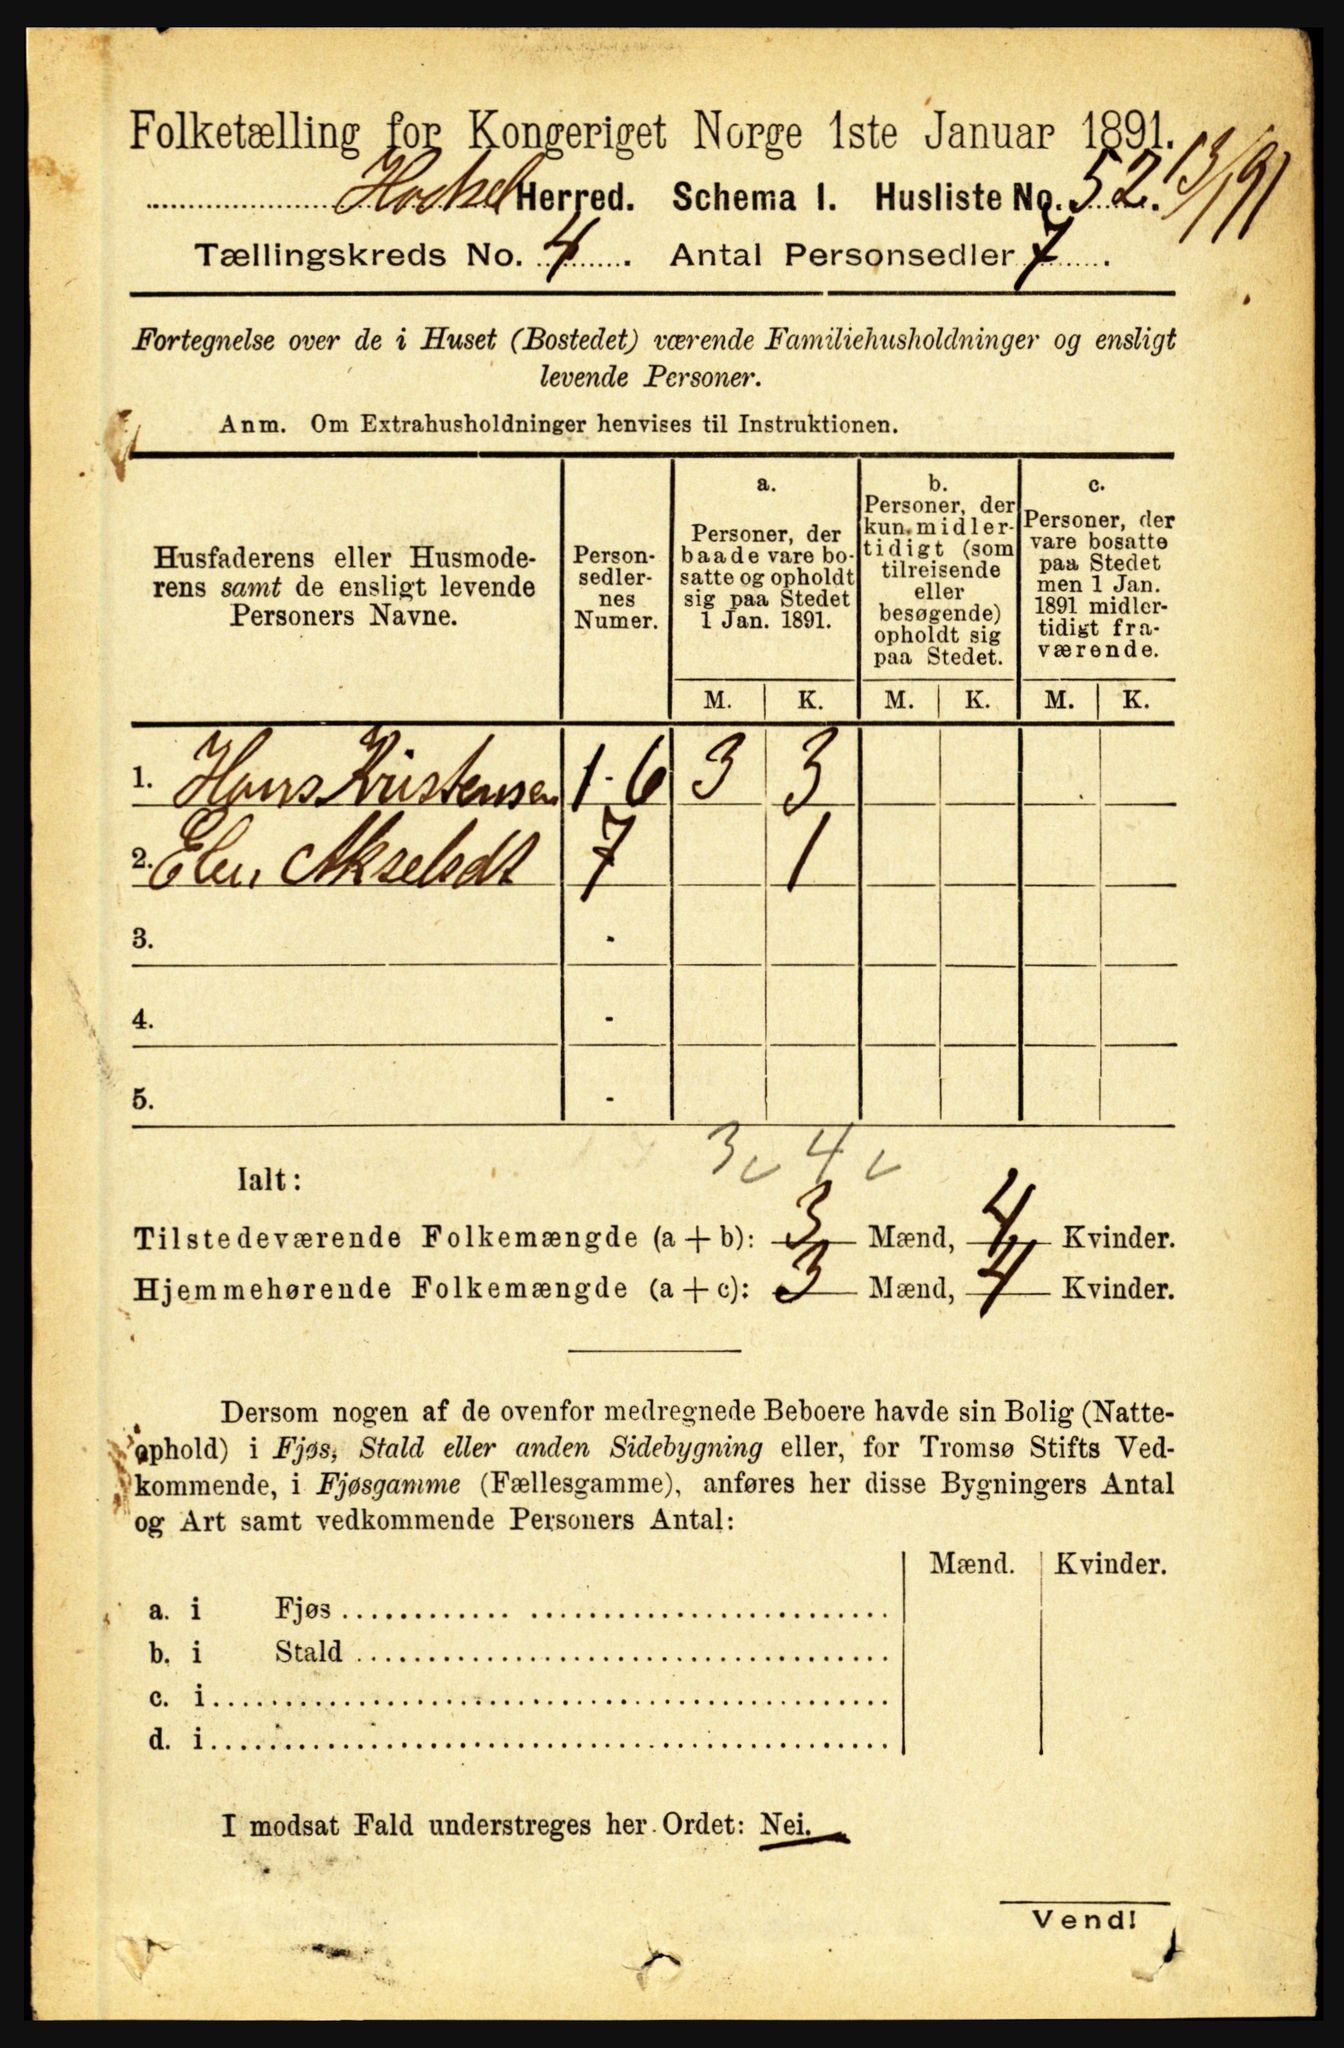 Folketælling for Kongeriget Norge 1ste Januar 1891.
Herred. Schema 1. Husliste No. 52. 13/1 91
Tællingskreds No. 4. Antal Personsedler 7.
Fortegnelse over de i Huset (Bostedet) værende Familiehusholdninger og ensligt
levende Personer.
Anm. Om Extrahusholdninger henvises til Instruktionen.
Husfaderens eller Husmode-
rens samt de ensligt levende
Personers Navne.
Person-
sedler-
nes
Numer.
a.
Personer, der
baade vare bo-
satte og opholdt
sig paa Stedet
1 Jan. 1891.
b.
Personer, der
kun midler-
tidigt (som
tilreisende
eller
besøgende)
opholdt sig
paa Stedet.
c.
Personer, der
vare bosatte
paa Stedet
men 1 Jan.
1891 midler-
tidigt fra-
værende.
M. K. M. K. M. K.
1. Hans Kristensen 1 - 6 3 3
2. Elen Akselsdt 7 1
3. -
4. -
5. -
3 4
Ialt:
Tilstedeværende Folkemængde (a + b): 3 Mænd, 4 Kvinder.
Hjemmehørende Folkemængde (a + c): 3 Mænd, 4 Kvinder.
Dersom nogen af de ovenfor medregnede Beboere havde sin Bolig (Natte-
ophold) i Fjøs, Stald eller anden Sidebygning eller, for Tromsø Stifts Ved-
kommende, i Fjøsgamme (Fællesgamme), anføres her disse Bygningers Antal
og Art samt vedkommende Personers Antal:
Mænd. Kvinder.
a. i Fjøs
b. i Stald
c. i
d. i
I modsat Fald understreges her Ordet: Nei.
Vend!